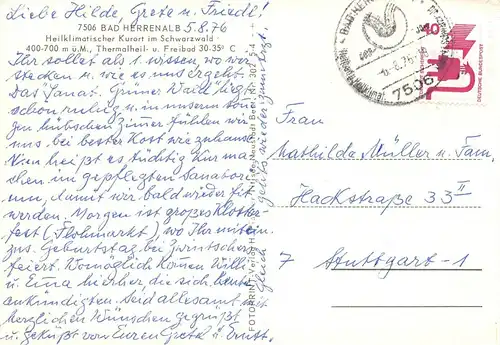 Liebe Hilde, Greta u. Friedl!
7506 BAD HERRENALB 5.8.76
Heilklimatischer Kurort im Schwarzwald
400-700 m ü.M., Thermalheil- u. Freibad 30-35° C
Ihr sollet als 1. wissen, wo wir
stecken u. wie es uns ergeht.
Das Sanat. Grüner Wald liegt
schon ruhig u. in unserem son-
gen hübschen Zimer fühlen wir
uns bei bester Kost wie zuhause.
Nun heißt es tüchtig Kur ma-
chen im gepflegten Sanatori-
um, damit wir bald wieder fit
werden. Morgen ist großes Kloster-
fest (Flohmarkt) wo Ihr mit ein.
zus. Geburtstag bei
feiert. Womöglich kommen Willi
u. Erna hierher die sich heute
ankündigten. Seid alle samt mit
herzlichen Wünschen gegrüßt
u. geküßt von Euren Greta u. Ernst.
Gleich
FOTOPRINT-Verlag
BAD HERRENALB
-6.8.76
7506
40
DEUTSCHE BUNDESPOST
Frau
Mathilde Müller u. Fam.
Hackstraße 33 II
7 Stuttgart-1